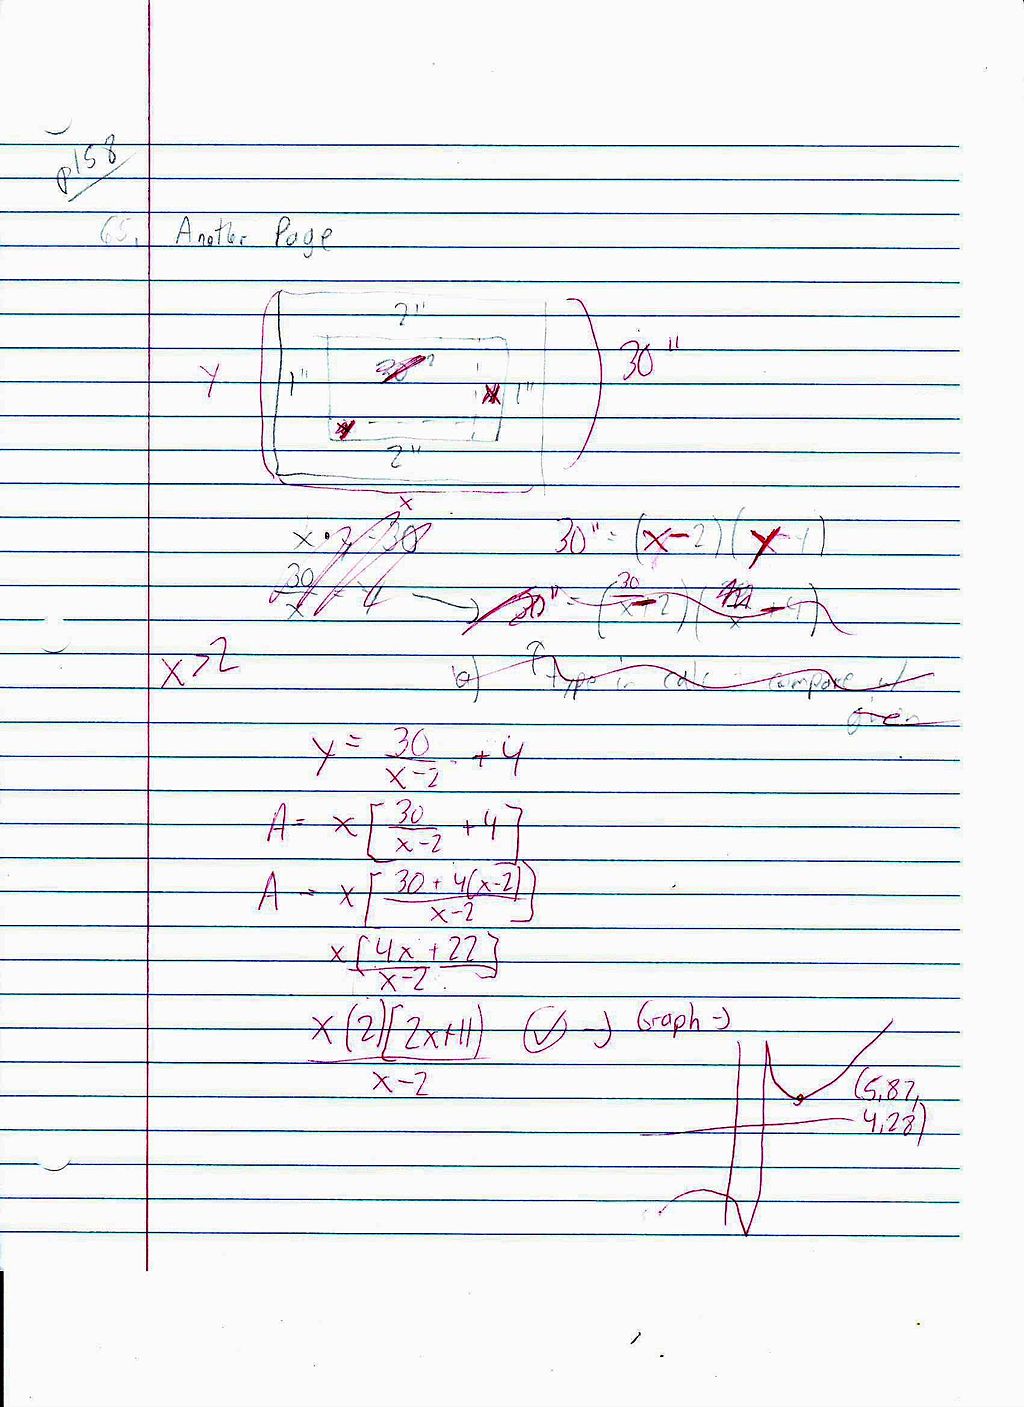 p158
65. Another Page
2"
30"
Y 1" 1"
2"
x
x · y = 30
30" = (x-2)(y-4)
30/x = y
x>2
b) type in calc - compare w/
given
y = 30/(x-2) + 4
A = x[30/(x-2) + 4]
A = x[(30+4(x-2))/(x-2)]
x[4x+22]/(x-2)
x(2)[2x+11]/(x-2) ✓ → Graph →
(5.82,
4.28)